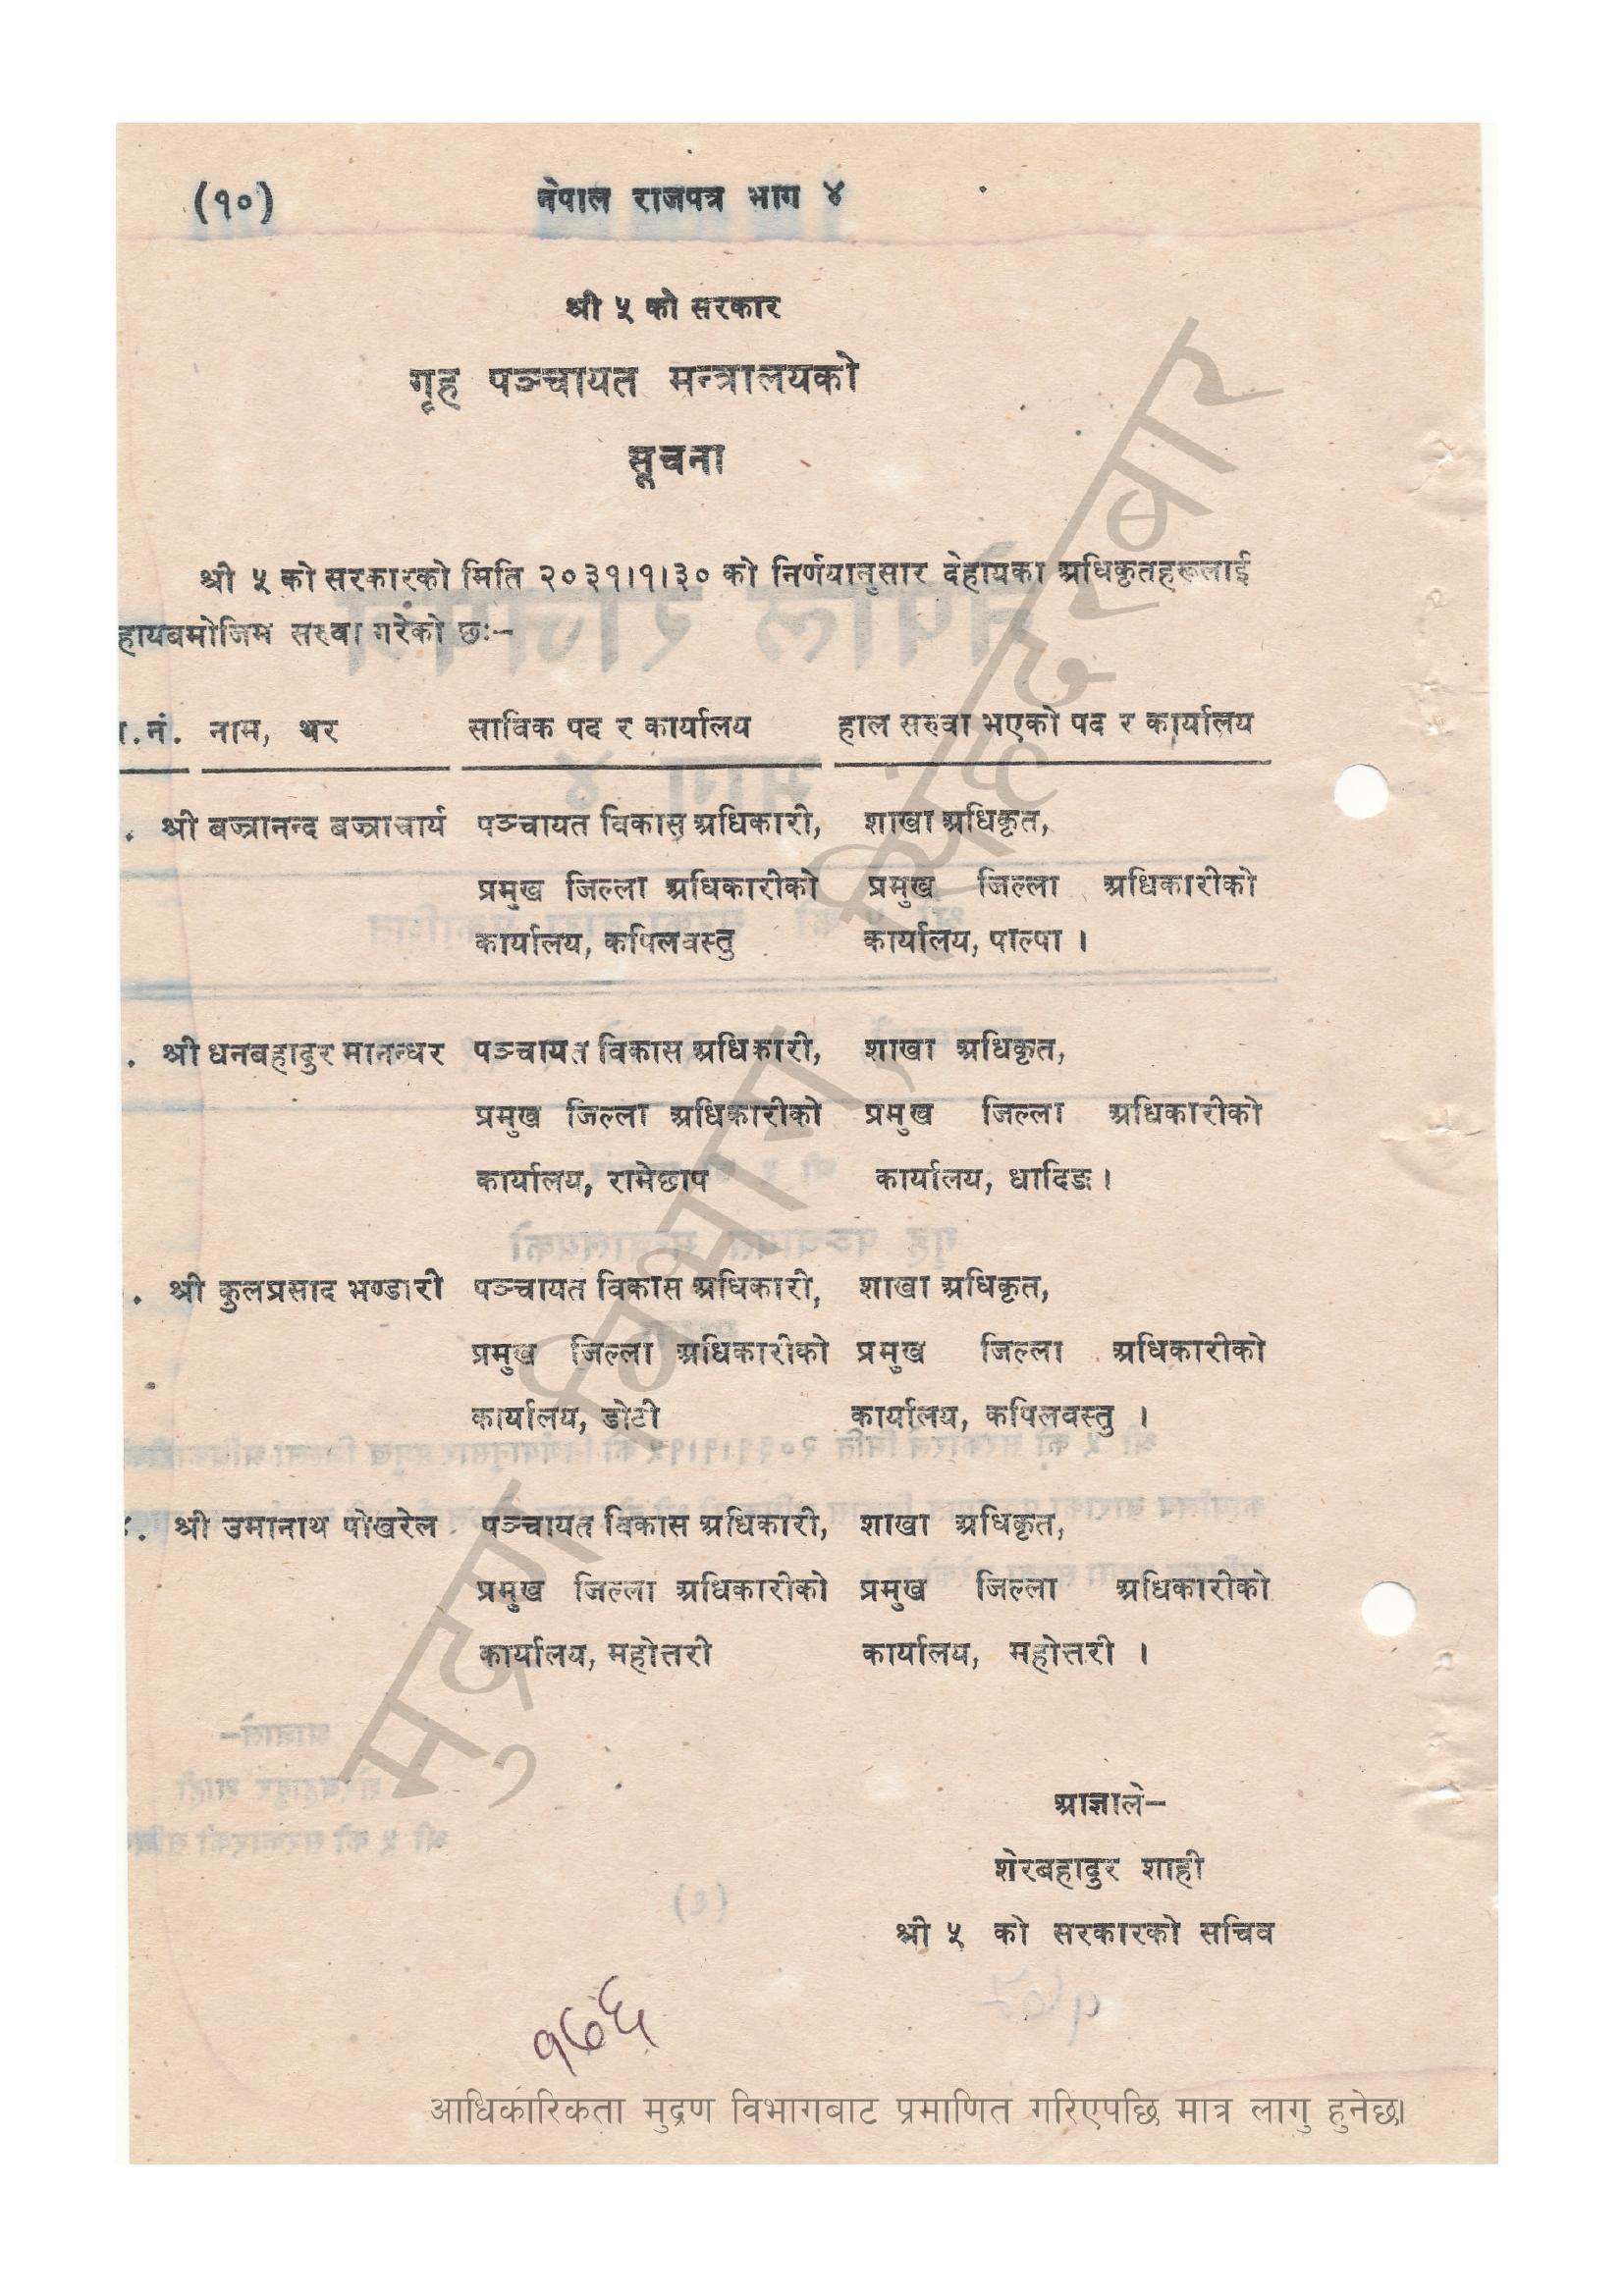 (१०) नेपाल राजपत्र भाग ४
श्री ५ को सरकार
गृह पञ्चायत मन्त्रालयको
सूचना
श्री ५ को सरकारको मिति २०३१।१।३० को निर्णयानुसार देहायका अधिकृतहरूलाई
हायबमोजिम सरुवा गरेको छः–
.नं. नाम, थर साविक पद र कार्यालय हाल सरुवा भएको पद र कार्यालय
. श्री बज्रानन्द बज्राचार्य पञ्चायत विकास अधिकारी, शाखा अधिकृत,
प्रमुख जिल्ला अधिकारीको प्रमुख जिल्ला अधिकारीको
कार्यालय, कपिलवस्तु कार्यालय, पाल्पा ।
. श्री धनबहादुर मानन्धर पञ्चायत विकास अधिकारी, शाखा अधिकृत,
प्रमुख जिल्ला अधिकारीको प्रमुख जिल्ला अधिकारीको
कार्यालय, रामेछाप कार्यालय, धादिङ।
. श्री कुलप्रसाद भण्डारी पञ्चायत विकास अधिकारी, शाखा अधिकृत,
प्रमुख जिल्ला अधिकारीको प्रमुख जिल्ला अधिकारीको
कार्यालय, डोटी कार्यालय, कपिलवस्तु ।
. श्री उमानाथ पोखरेल पञ्चायत विकास अधिकारी, शाखा अधिकृत,
प्रमुख जिल्ला अधिकारीको प्रमुख जिल्ला अधिकारीको
कार्यालय, महोत्तरी कार्यालय, महोत्तरी ।
आज्ञाले–
शेरबहादुर शाही
श्री ५ को सरकारको सचिव
१७६
आधिकारिकता मुद्रण विभागबाट प्रमाणित गरिएपछि मात्र लागु हुनेछ।
मुद्रण विभाग, सिंहदरबार